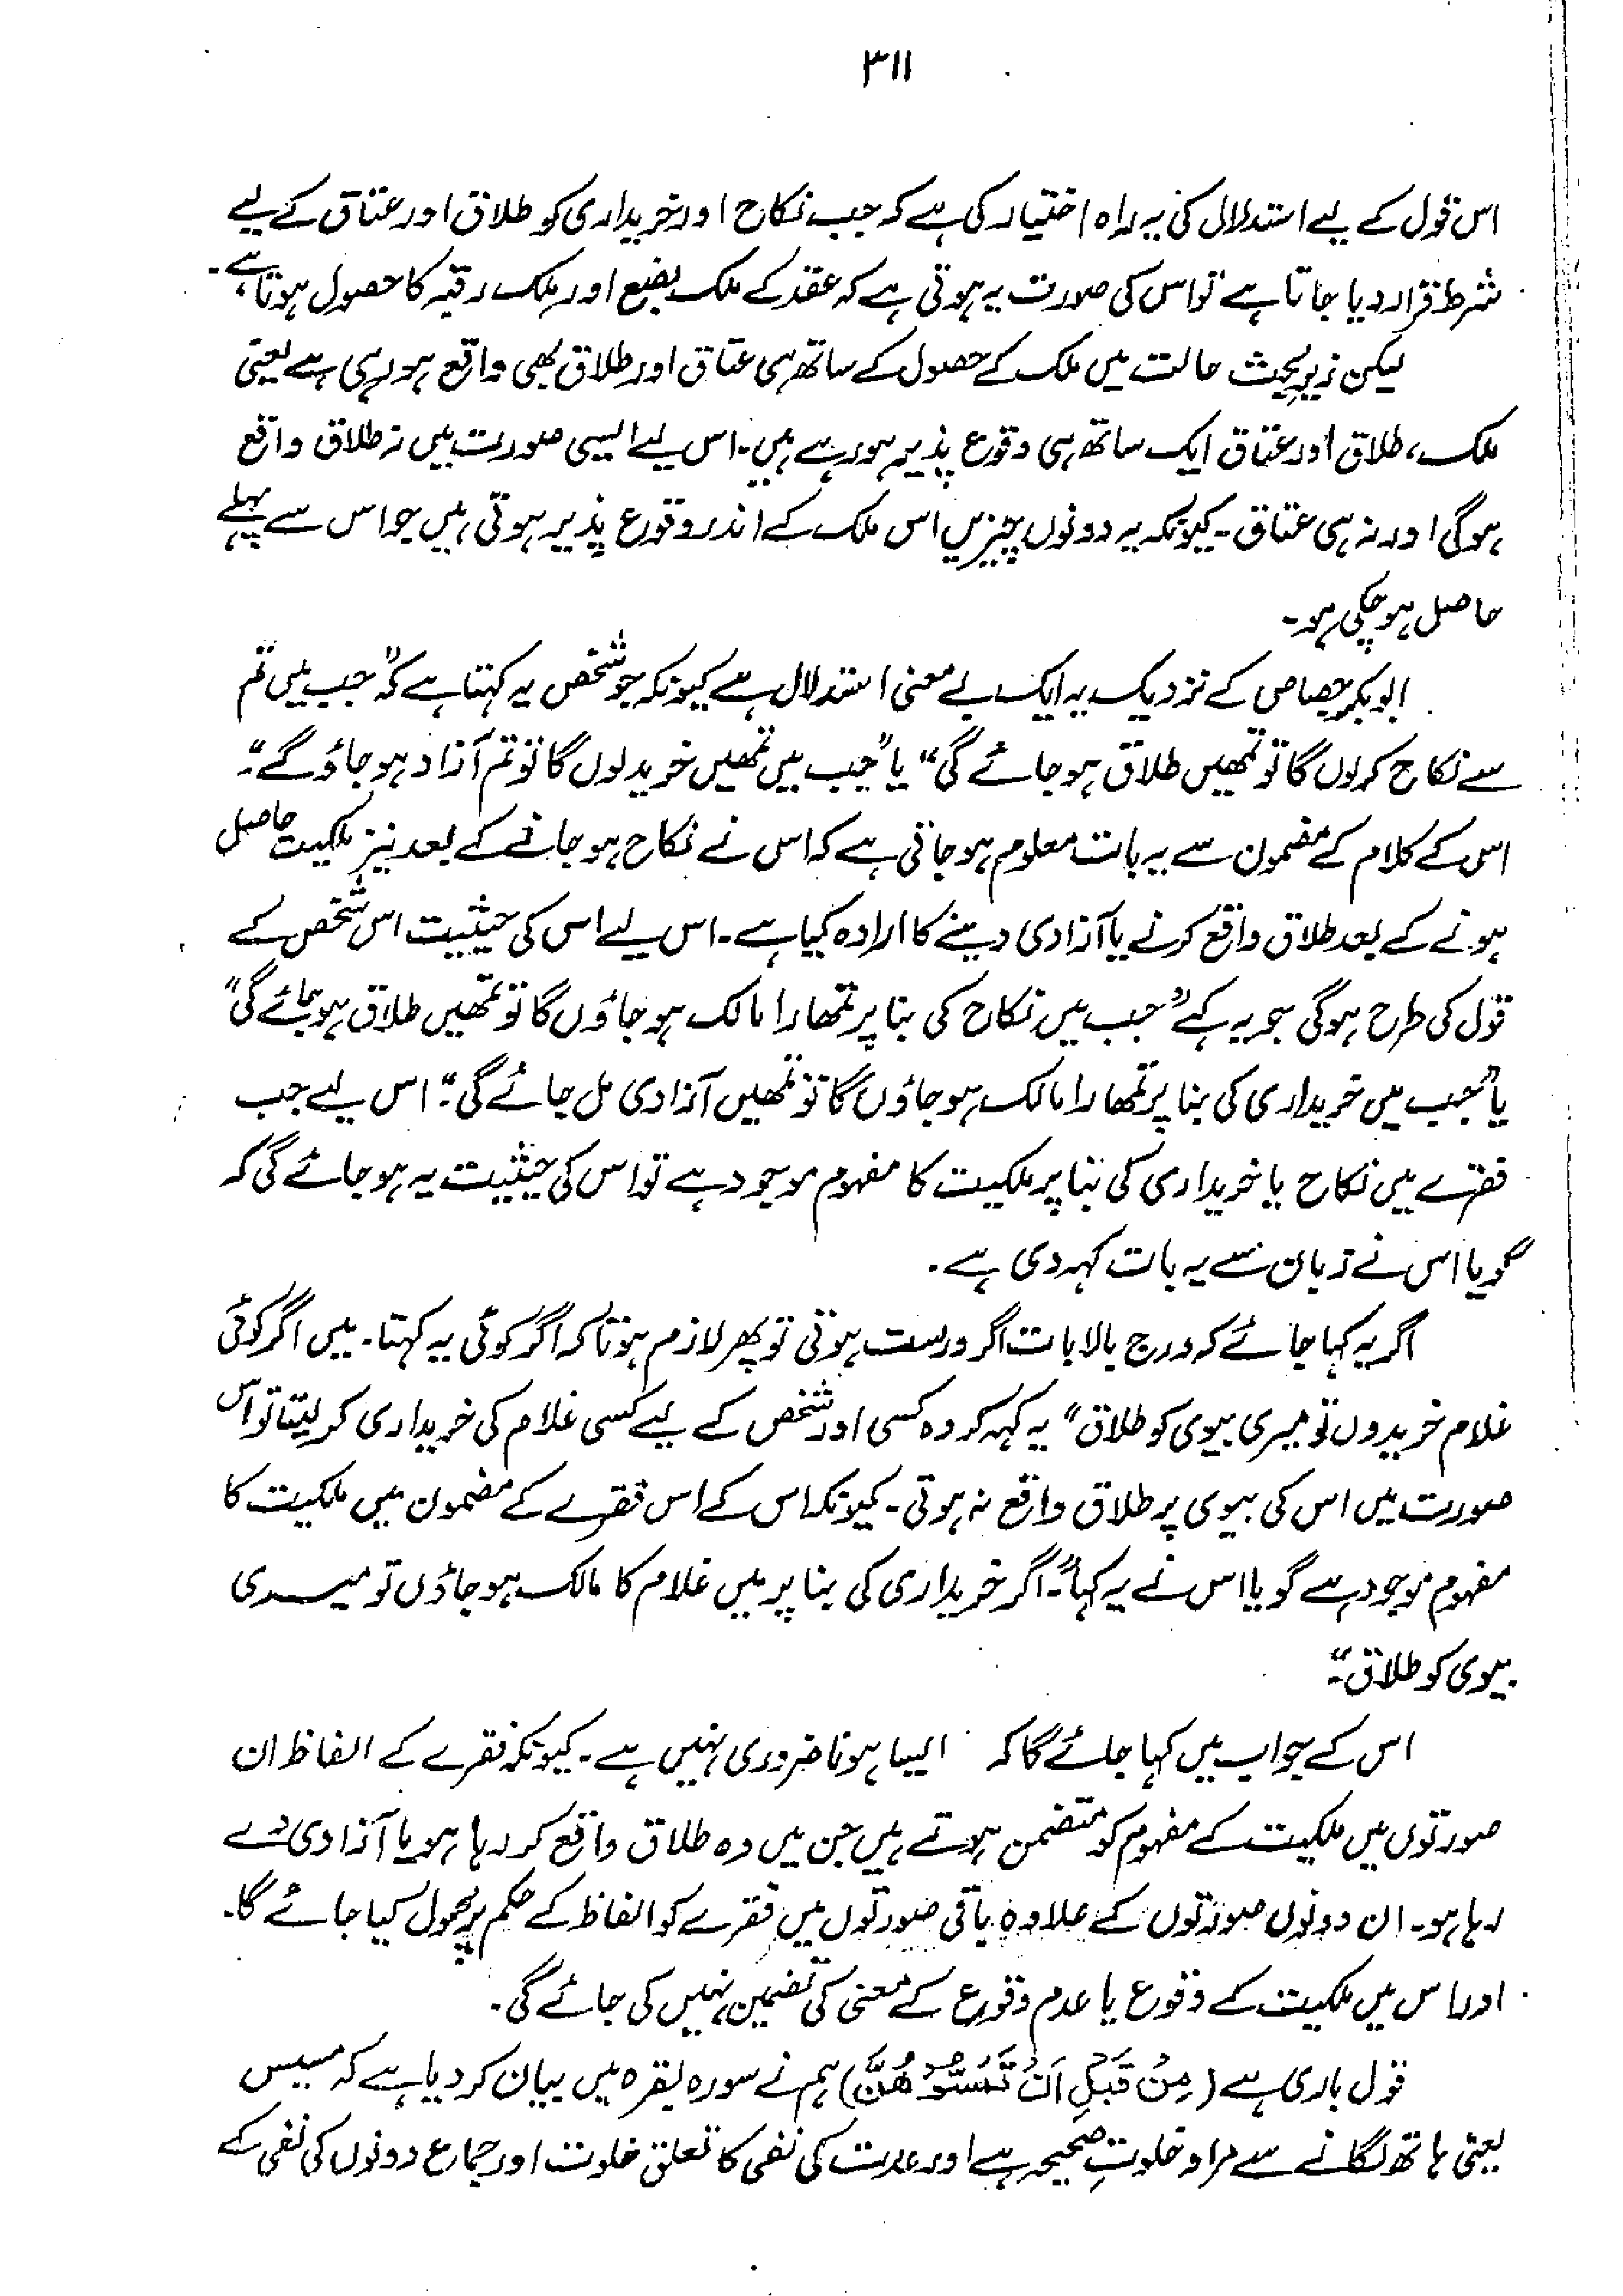 ۳۱۱
اس قول کے لیے استدلال کی یہ راہ اختیار کی ہے کہ جب نکاح اور خریداری کو طلاق اور عتاق کے لیے
شرط قرار دیا جاتا ہے تو اس کی صورت یہ ہوتی ہے کہ عقد کے ملک بضع اور ملک رقبہ کا حصول ہوتا ہے۔
لیکن زیر بحث حالت میں ملک کے حصول کے ساتھ ہی عتاق اور طلاق بھی واقع ہو رہی ہے یعنی
ملک، طلاق اور عتاق ایک ساتھ ہی وقوع پذیر ہو رہے ہیں۔ اس لیے ایسی صورت میں نہ طلاق واقع
ہوگی اور نہ ہی عتاق۔ کیونکہ یہ دونوں چیزیں اس ملک کے اندر وقوع پذیر ہوتی ہیں جو اس سے پہلے
حاصل ہو چکی ہو۔
ابوبکر جصاص کے نزدیک یہ ایک بے معنی استدلال ہے کیونکہ جو شخص یہ کہتا ہے کہ "جب میں تم
سے نکاح کرلوں گا تو تمھیں طلاق ہو جائے گی" یا "جب میں تمھیں خرید لوں گا تو تم آزاد ہو جاؤ گے"۔
اس کے کلام کے مضمون سے یہ بات معلوم ہو جاتی ہے کہ اس نے نکاح ہو جانے کے بعد نیز ملکیت حاصل
ہونے کے بعد طلاق واقع کرنے یا آزادی دینے کا ارادہ کیا ہے۔ اس لیے اس کی حیثیت اس شخص کے
قول کی طرح ہوگی جو یہ کہے "جب میں نکاح کی بنا پر تمھارا مالک ہو جاؤں گا تو تمھیں طلاق ہو جائے گی"
یا "جب میں خریداری کی بنا پر تمھارا مالک ہو جاؤں گا تو تمھیں آزادی مل جائے گی"۔ اس لیے جب
فقرے میں نکاح یا خریداری کی بنا پر ملکیت کا مفہوم موجود ہے تو اس کی حیثیت یہ ہو جائے گی کہ
گویا اس نے زبان سے یہ بات کہہ دی ہے۔
اگر یہ کہا جائے کہ درج بالا بات اگر درست ہوتی تو پھر لازم ہوتا کہ اگر کوئی یہ کہتا۔ میں اگر کوئی
غلام خریدوں تو میری بیوی کو طلاق" یہ کہہ کر وہ کسی اور شخص کے لیے کسی غلام کی خریداری کر لیتا تو اس
صورت میں اس کی بیوی پر طلاق واقع نہ ہوتی۔ کیونکہ اس کے اس فقرے کے مضمون میں ملکیت کا
مفہوم موجود ہے گویا اس نے یہ کہا"۔ اگر خریداری کی بنا پر میں غلام کا مالک ہو جاؤں تو میری
بیوی کو طلاق"۔
اس کے جواب میں کہا جائے گا کہ ایسا ہونا ضروری نہیں ہے۔ کیونکہ فقرے کے الفاظ ان
صورتوں میں ملکیت کے مفہوم کو متضمن ہوتے ہیں جن میں وہ طلاق واقع کر رہا ہو یا آزادی دے
رہا ہو۔ ان دونوں صورتوں کے علاوہ باقی صورتوں میں فقرے کو الفاظ کے حکم پر محمول کیا جائے گا۔
اور اس میں ملکیت کے وقوع یا عدم وقوع کے معنی کی تضمین نہیں کی جائے گی۔
قول باری ہے (مِنْ قَبْلِ اَنْ تَمَسُّوْهُنَّ) ہم نے سورہ بقرہ میں بیان کر دیا ہے کہ مسیس
یعنی ہاتھ لگانے سے مراد خلوتِ صحیحہ ہے اور عدت کی نفی کا تعلق خلوت اور جماع دونوں کی نفی کے